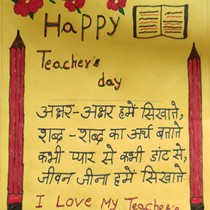 Happy
Teacher's
day
अक्षर-अक्षर हमें सिखाते,
शब्द-शब्द का अर्थ बताते
कभी प्यार से कभी डांट से,
जीवन जीना हमें सिखाते
I Love My Teacher's